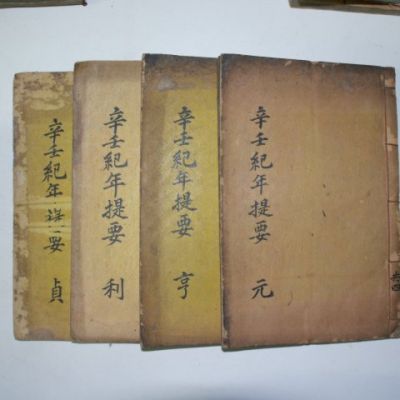 辛壬紀年提要 元
辛壬紀年提要 亨
辛壬紀年提要 利
辛壬紀年提要 貞